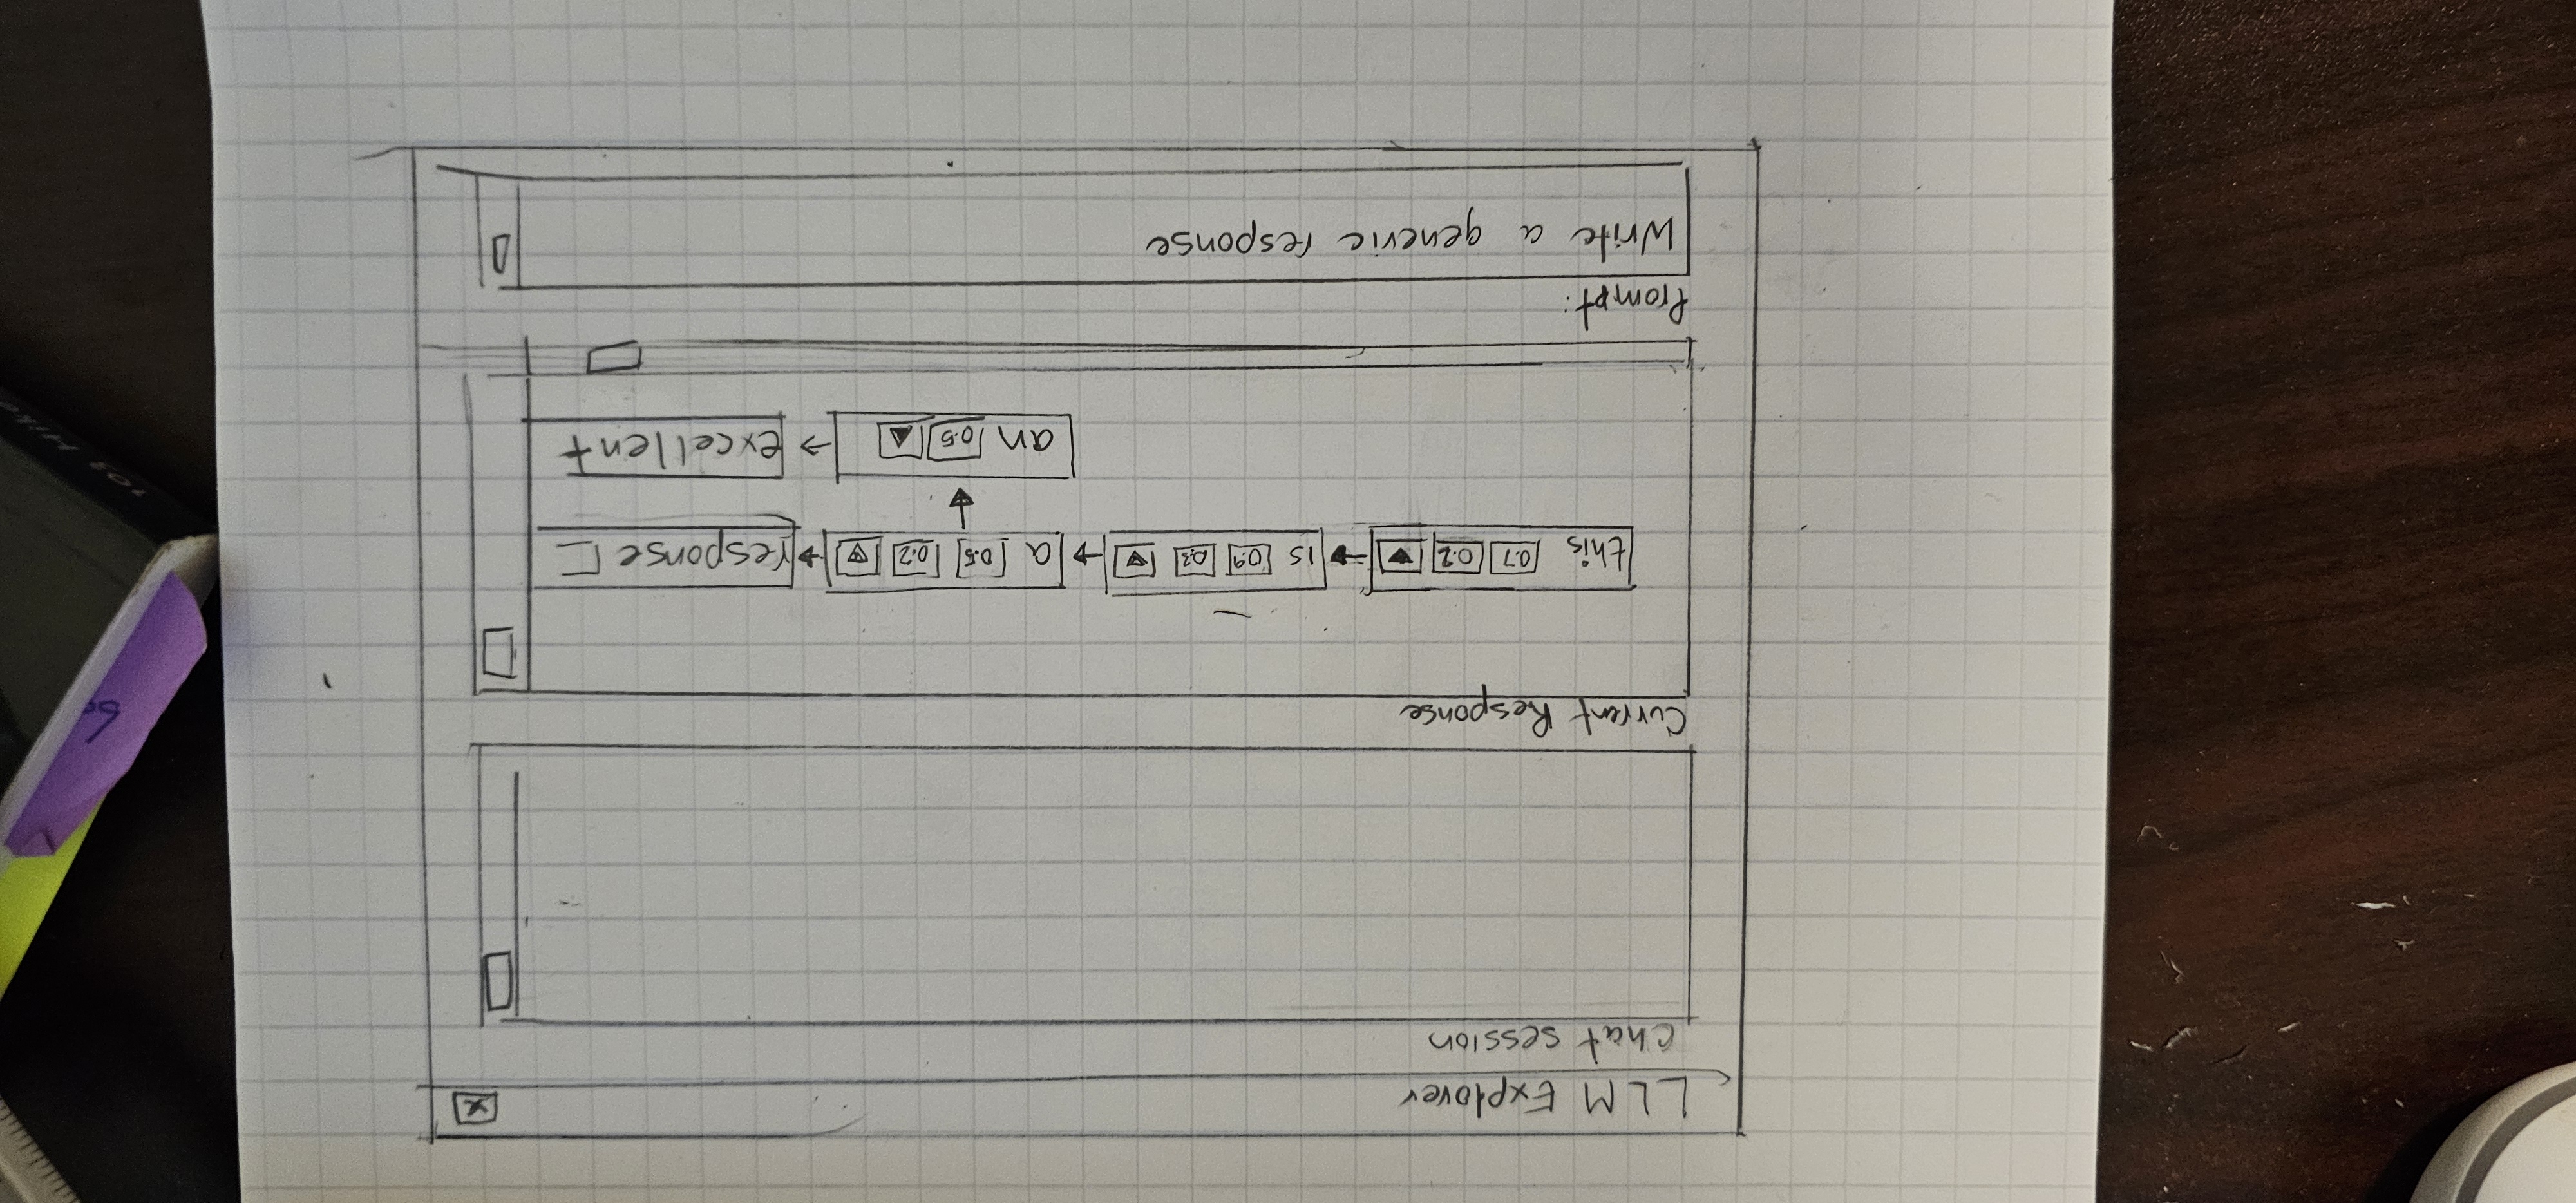 LLM Explorer X
Chat session
Current Response
this 0.7 0.2 is 0.9 0.3 a 0.5 0.2 response
an 0.5 excellent
Prompt:
Write a generic response